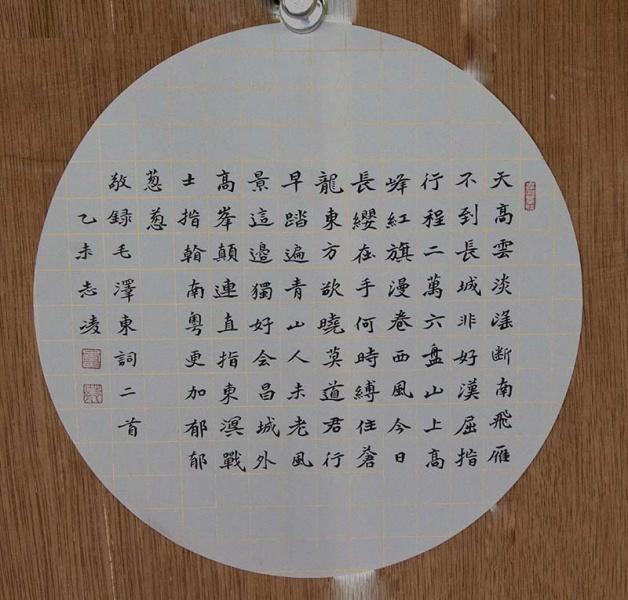 天髙雲淡望断南飛雁
不到長城非好漢屈指
行程二萬六盤山上髙
峰紅旗漫卷西風今日
長纓在手何時縛住蒼
龍東方欲曉莫道君行
早踏遍青山人未老風
景這邊獨好会昌城外
髙峯顛連直指東溟戰
士指看南粤更加郁郁
葱葱
敬録毛澤東詞二首
乙未志凌